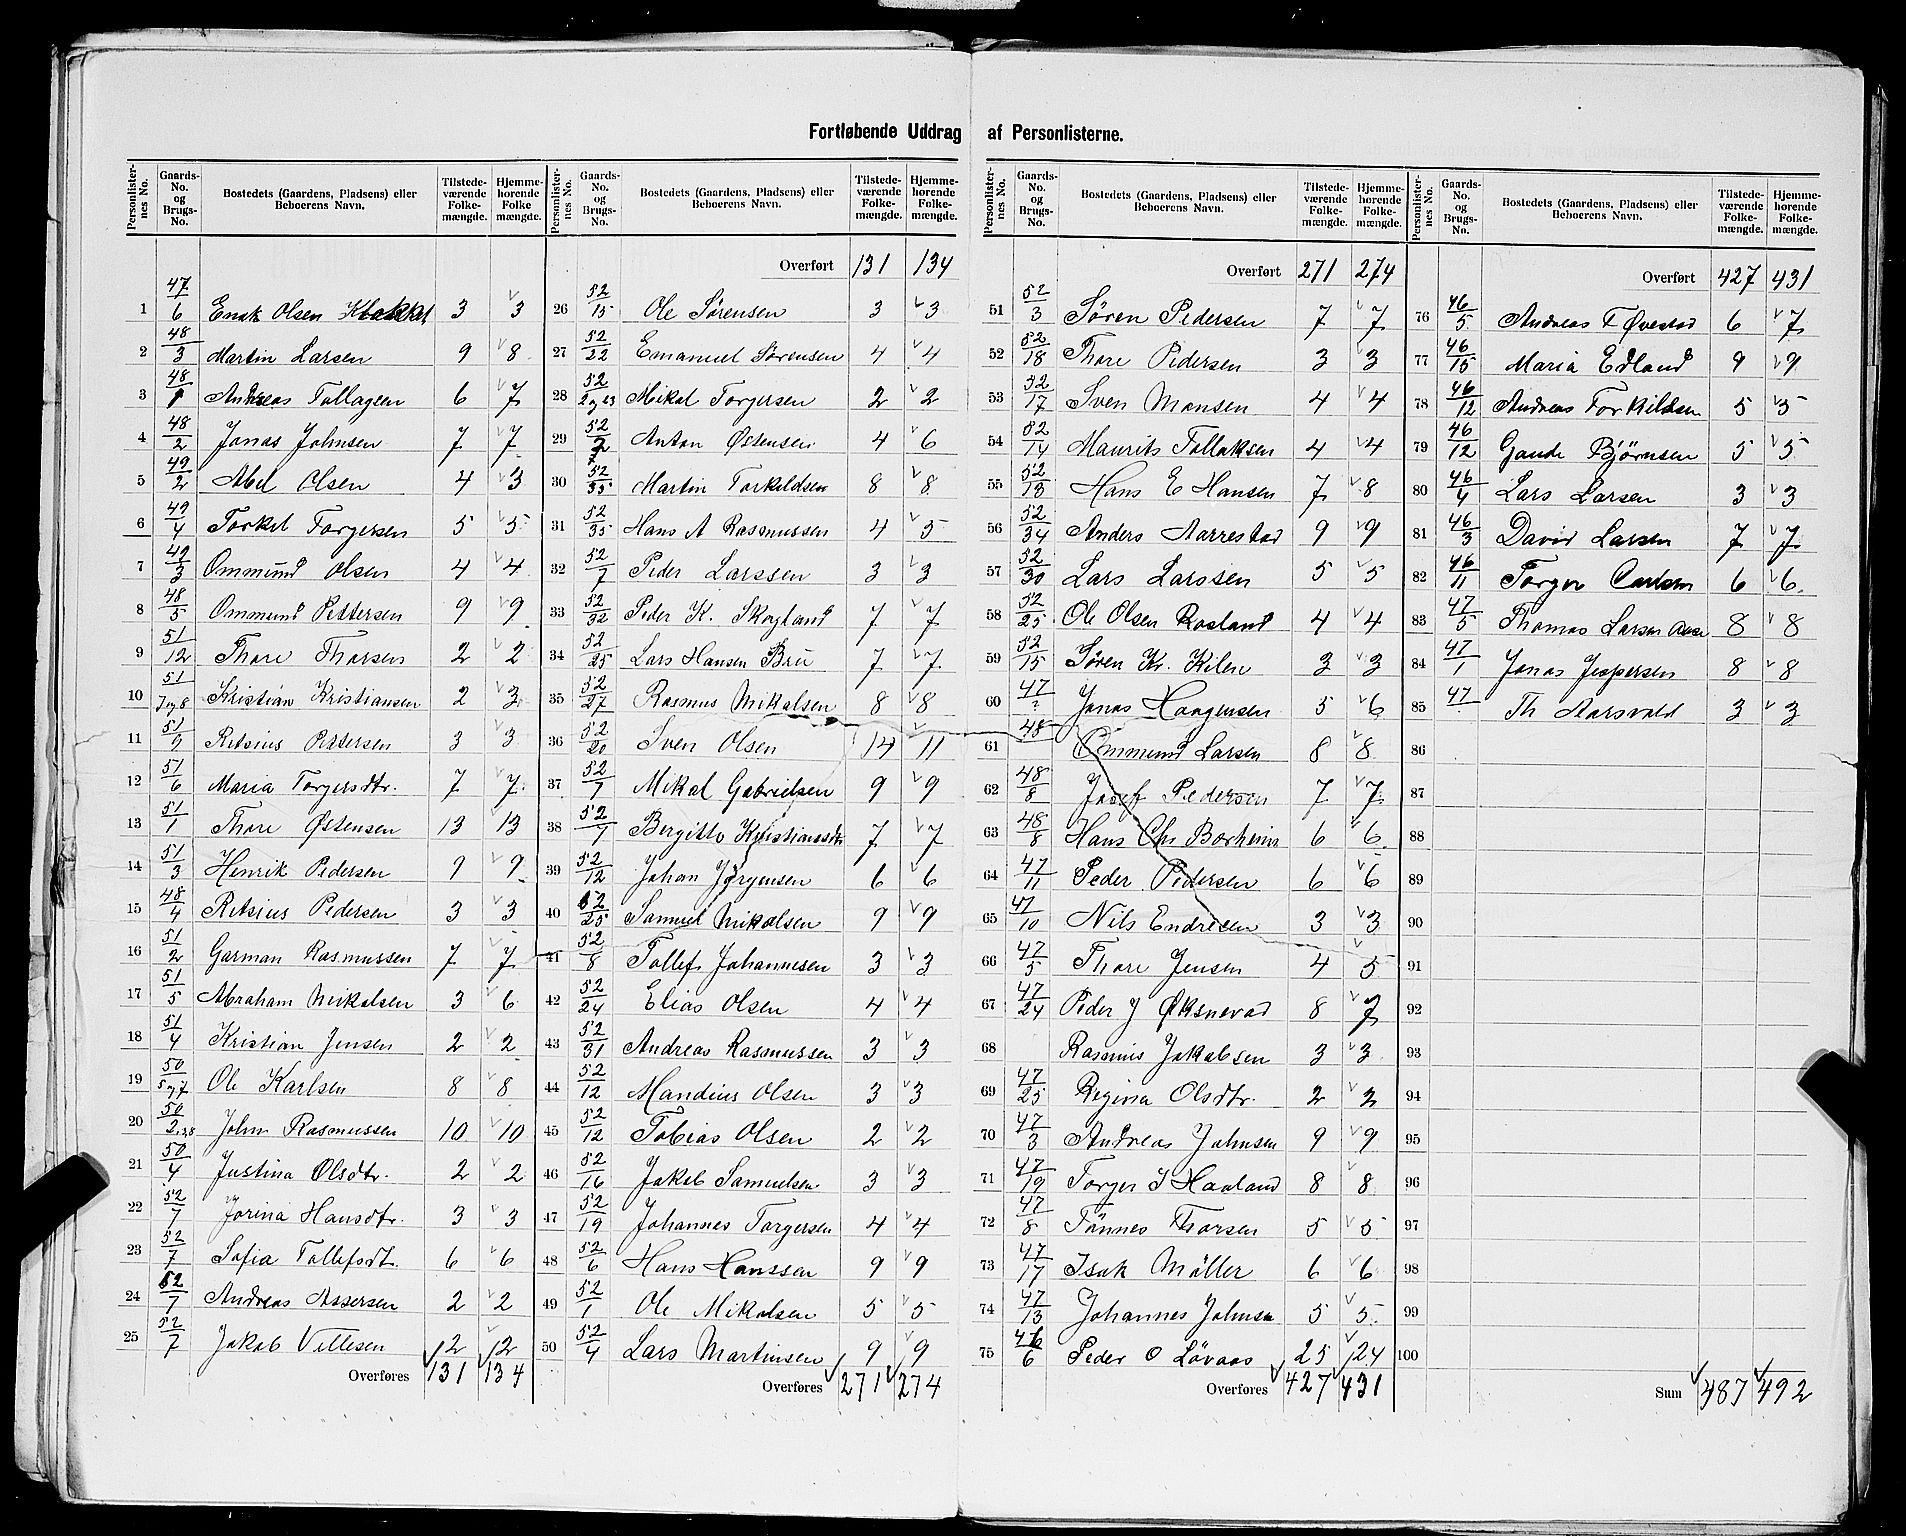 Fortløbende Uddrag af Personlisternes.
Personlister- nes No. | Gaards- No. og Brugs- No. | Bostedets (Gaardens, Pladsens) eller Beboerens Navn. | Tilstede- værende Folke- mængde. | Hjemme- hørende Folke mængde.
1 47/6 Enok Olsen 3 3
2 48/3 Martin Larsen 9 8
3 48/1 Andreas Tallagsen 6 7
4 48/2 Jonas Johnsen 7 7
5 49/2 Abel Olsen 4 3
6 49/4 Torkel Torgersen 5 5
7 49/3 Ommund Olsen 4 4
8 48/5 Ommund Pettersen 9 9
9 51/12 Thore Thorsen 2 2
10 51/7og8 Kristian Kristiansen 2 3
11 51/9 Retsius Pettersen 3 3
12 51/6 Maria Torgersdtr. 7 7
13 51/1 Thore Østensen 13 13
14 51/3 Henrik Pedersen 9 9
15 48/4 Retsius Pedersen 3 3
16 51/2 Garman Rasmussen 7 7
17 51/5 Abraham Mikalsen 3 6
18 51/4 Kristian Jensen 2 2
19 50/5og7 Ole Karlsen 8 8
20 50/2,3,8 John Rasmussen 10 10
21 50/4 Justina Olsdtr. 2 2
22 52/7 Jorina Hansdtr. 3 3
23 52/7 Sofia Tollefsdt. 6 6
24 52/7 Andreas Assersen 2 2
25 52/7 Jakob Villesen 12 12
Overføres 131 134
Personlister- nes No. | Gaards- No. og Brugs- No. | Bostedets (Gaardens, Pladsens) eller Beboerens Navn. | Tilstede- værende Folke- mængde. | Hjemme- hørende Folke- mængde.
Overført 131 134
26 52/15 Ole Sørensen 3 3
27 52/22 Emanuel Sørensen 4 4
28 52/2og23 Mikal Torgersen 2 2
29 52/2 Anton Østensen 4 6
30 52/35 Martin Torkildsen 8 8
31 52/35 Hans A Rasmussen 4 5
32 52/7 Peder Larssen 3 3
33 52/32 Peder K. Skogland 7 7
34 52/25 Lars Hansen Bru 7 7
35 52/27 Rasmus Mikalsen 8 8
36 52/20 Sven Olsen 14 11
37 52/7 Mikal Gabrielsen 9 9
38 52/7 Bergitte Kristiansdt 7 7
39 52/12 Johan Jørgensen 6 6
40 52/25 Samuel Mikalsen 9 9
41 52/8 Tollef Johannesen 3 3
42 52/24 Elias Olsen 4 4
43 52/31 Andreas Rasmussen 3 3
44 52/12 Mandius Olsen 3 3
45 52/12 Tobias Olsen 2 2
46 52/16 Jakob Samuelsen 3 3
47 52/19 Johannes Torgersen 4 4
48 52/6 Hans Hanssen 9 9
49 52/1 Ole Mikalsen 5 5
50 52/4 Lars Martinsen 9 9
Overføres 271 274
Personlister- nes No. | Gaards- No. og Brugs- No. | Bostedets (Gaardens, Pladsens) eller Beboerens Navn. | Tilstede- værende Folke- mængde. | Hjemme- hørende Folke- mængde.
Overført 271 274
51 52/3 Søren Pedersen 7 7
52 52/18 Thore Pedersen 3 3
53 52/17 Sven Monsen 4 4
54 52/14 Maurits Tollaksen 4 4
55 52/18 Hans E Hansen 7 8
56 52/34 Anders Aarrestad 9 9
57 52/30 Lars Larssen 5 5
58 52/25 Ole Olsen Rosland 4 4
59 52/15 Søren Kr. Kilen 3 3
60 47/? Jonas Haagensen 5 6
61 48 Ommund Larsen 8 8
62 48/8 Josef Pedersen 7 7
63 48/8 Hans Chr Borheim 6 6
64 47/11 Peder Pedersen 6 6
65 47/10 Nils Endresen 3 3
66 47/5 Thore Jensen 4 5
67 47/24 Peder J Øksnevad 8 7
68 Rasmus Jakobsen 3 3
69 47/25 Regina Olsdtr. 2 2
70 47/3 Andreas Johnsen 9 9
71 47/19 Torger I Haaland 8 8
72 47/8 Tönnes Thorsen 5 5
73 47/17 Isak Möller 6 6
74 47/13 Johannes Johnsen 5 5
75 46/6 Peder O Lövaas 25 24
Overføres 427 431
Personlister- nes No. | Gaards- No. og Brugs- No. | Bostedets (Gaardens, Pladsens) eller Beboerens Navn. | Tilstede- værende Folke- mængde. | Hjemme- hørende Folke- mængde.
Overført 427 431
76 46/5 Andreas T Øvestad 6 7
77 46/15 Maria Edland 9 9
78 46/12 Andreas Torkildsen 5 5
79 46/12 Gaude Bjørnsen 5 5
80 46/4 Lars Larsen 3 3
81 46/3 David Larsen 7 7
82 46/11 Torger Carlsen 6 6
83 47/5 Thomas Larsen 8 8
84 47/1 Jonas Jespersen 8 8
85 47 Th Aarsvold 3 3
86
87
88
89
90
91
92
93
94
95
96
97
98
99
100
Sum 487 492